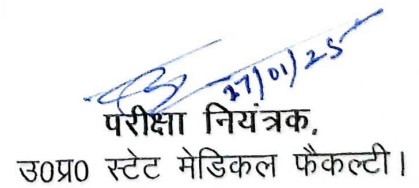 27/01/25
परीक्षा नियंत्रक,
उ०प्र० स्टेट मेडिकल फैकल्टी।